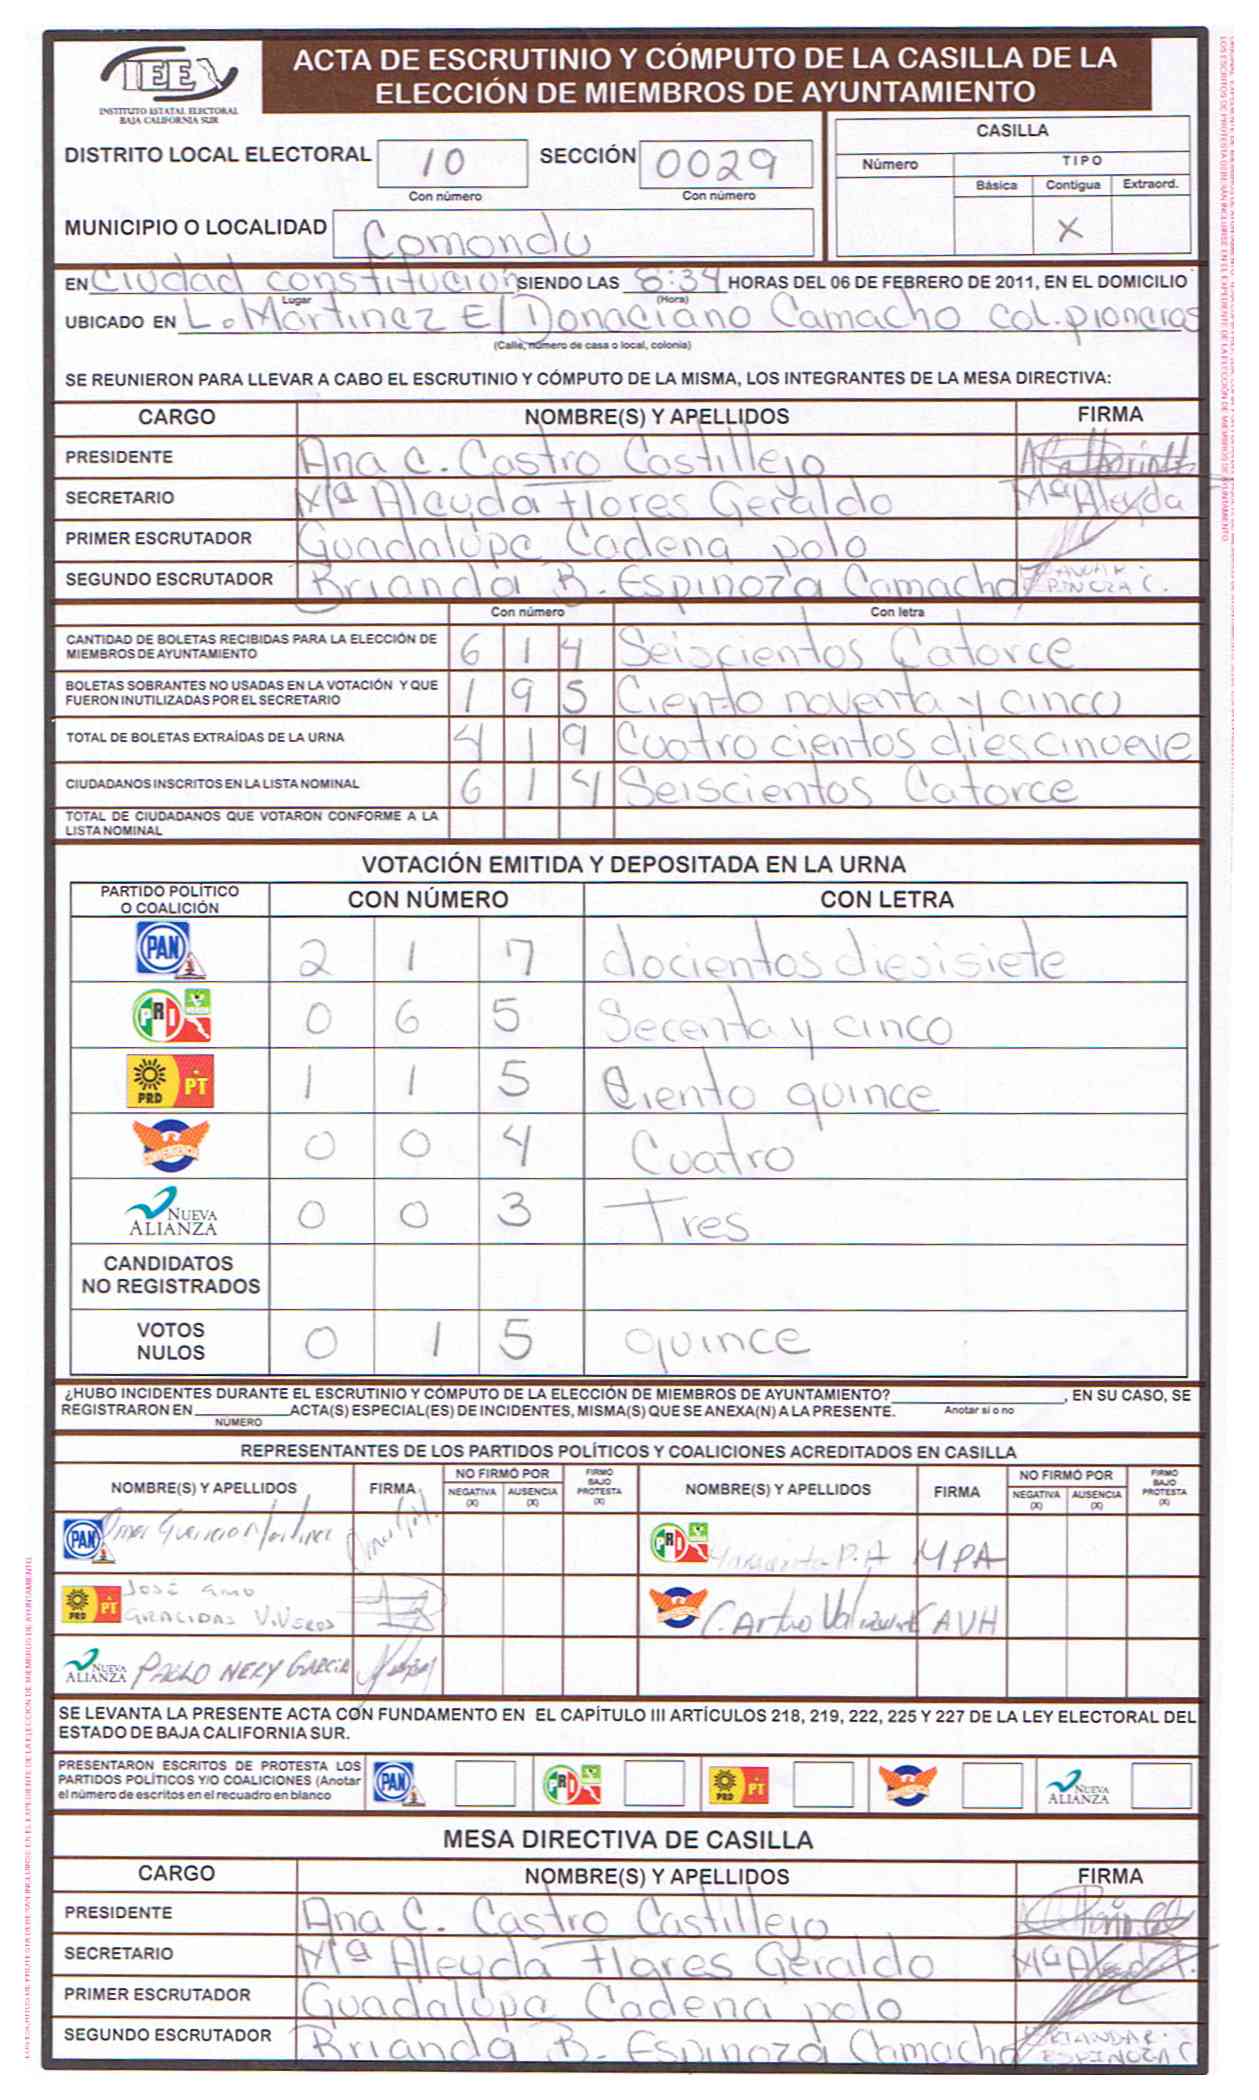 IEE
INSTITUTO ESTATAL ELECTORAL
BAJA CALIFORNIA SUR
ACTA DE ESCRUTINIO Y CÓMPUTO DE LA CASILLA DE LA
ELECCIÓN DE MIEMBROS DE AYUNTAMIENTO
DISTRITO LOCAL ELECTORAL 10 SECCIÓN 0029
Con número Con número
MUNICIPIO O LOCALIDAD Comondu
CASILLA
Número TIPO
Básica Contigua Extraord.
X
EN Ciudad constitución SIENDO LAS 8:34 HORAS DEL 06 DE FEBRERO DE 2011, EN EL DOMICILIO
Lugar (Hora)
UBICADO EN L. Martinez E/ Donaciano Camacho col. pioneras
(Calle, número de casa o local, colonia)
SE REUNIERON PARA LLEVAR A CABO EL ESCRUTINIO Y CÓMPUTO DE LA MISMA, LOS INTEGRANTES DE LA MESA DIRECTIVA:
CARGO NOMBRE(S) Y APELLIDOS FIRMA
PRESIDENTE Ana C. Castro Castillejo
SECRETARIO Mª Aleyda Flores Geraldo Mª Aleyda
PRIMER ESCRUTADOR Guadalupe Cadena polo
SEGUNDO ESCRUTADOR Brianda B. Espinoza Camacho ESPINOZA C.
Con número Con letra
CANTIDAD DE BOLETAS RECIBIDAS PARA LA ELECCIÓN DE
MIEMBROS DE AYUNTAMIENTO 6 1 4 Seiscientos Catorce
BOLETAS SOBRANTES NO USADAS EN LA VOTACIÓN Y QUE
FUERON INUTILIZADAS POR EL SECRETARIO 1 9 5 Ciento noventa y cinco
TOTAL DE BOLETAS EXTRAÍDAS DE LA URNA 4 1 9 Cuatro cientos diescinueve
CIUDADANOS INSCRITOS EN LA LISTA NOMINAL 6 1 4 Seiscientos Catorce
TOTAL DE CIUDADANOS QUE VOTARON CONFORME A LA
LISTA NOMINAL
VOTACIÓN EMITIDA Y DEPOSITADA EN LA URNA
PARTIDO POLÍTICO
O COALICIÓN CON NÚMERO CON LETRA
PAN 2 1 7 docientos diesisiete
PRI 0 6 5 Secenta y cinco
PRD PT 1 1 5 Ciento quince
CONVERGENCIA 0 0 4 Cuatro
NUEVA ALIANZA 0 0 3 Tres
CANDIDATOS
NO REGISTRADOS
VOTOS
NULOS 0 1 5 quince
¿HUBO INCIDENTES DURANTE EL ESCRUTINIO Y CÓMPUTO DE LA ELECCIÓN DE MIEMBROS DE AYUNTAMIENTO? , EN SU CASO, SE
REGISTRARON EN ACTA(S) ESPECIAL(ES) DE INCIDENTES, MISMA(S) QUE SE ANEXA(N) A LA PRESENTE. Anotar sí o no
NÚMERO
REPRESENTANTES DE LOS PARTIDOS POLÍTICOS Y COALICIONES ACREDITADOS EN CASILLA
NOMBRE(S) Y APELLIDOS FIRMA NO FIRMÓ POR NEGATIVA (X) AUSENCIA (X) FIRMÓ BAJO PROTESTA (X) NOMBRE(S) Y APELLIDOS FIRMA NO FIRMÓ POR NEGATIVA (X) AUSENCIA (X) FIRMÓ BAJO PROTESTA (X)
PAN Omar Martinez PRI Margarita P.A MPA
PRD PT José Gmo
Gracidas Viveros C. Arturo CAVH
NUEVA ALIANZA PABLO NERY GARCIA
SE LEVANTA LA PRESENTE ACTA CON FUNDAMENTO EN EL CAPÍTULO III ARTÍCULOS 218, 219, 222, 225 Y 227 DE LA LEY ELECTORAL DEL
ESTADO DE BAJA CALIFORNIA SUR.
PRESENTARON ESCRITOS DE PROTESTA LOS
PARTIDOS POLÍTICOS Y/O COALICIONES (Anotar
el número de escritos en el recuadro en blanco
PAN PRI PRD PT NUEVA ALIANZA
MESA DIRECTIVA DE CASILLA
CARGO NOMBRE(S) Y APELLIDOS FIRMA
PRESIDENTE Ana C. Castro Castillejo
SECRETARIO Mª Aleyda Flores Geraldo
PRIMER ESCRUTADOR Guadalupe Cadena polo
SEGUNDO ESCRUTADOR Brianda B. Espinoza Camacho BRIANDA B. ESPINOZA C